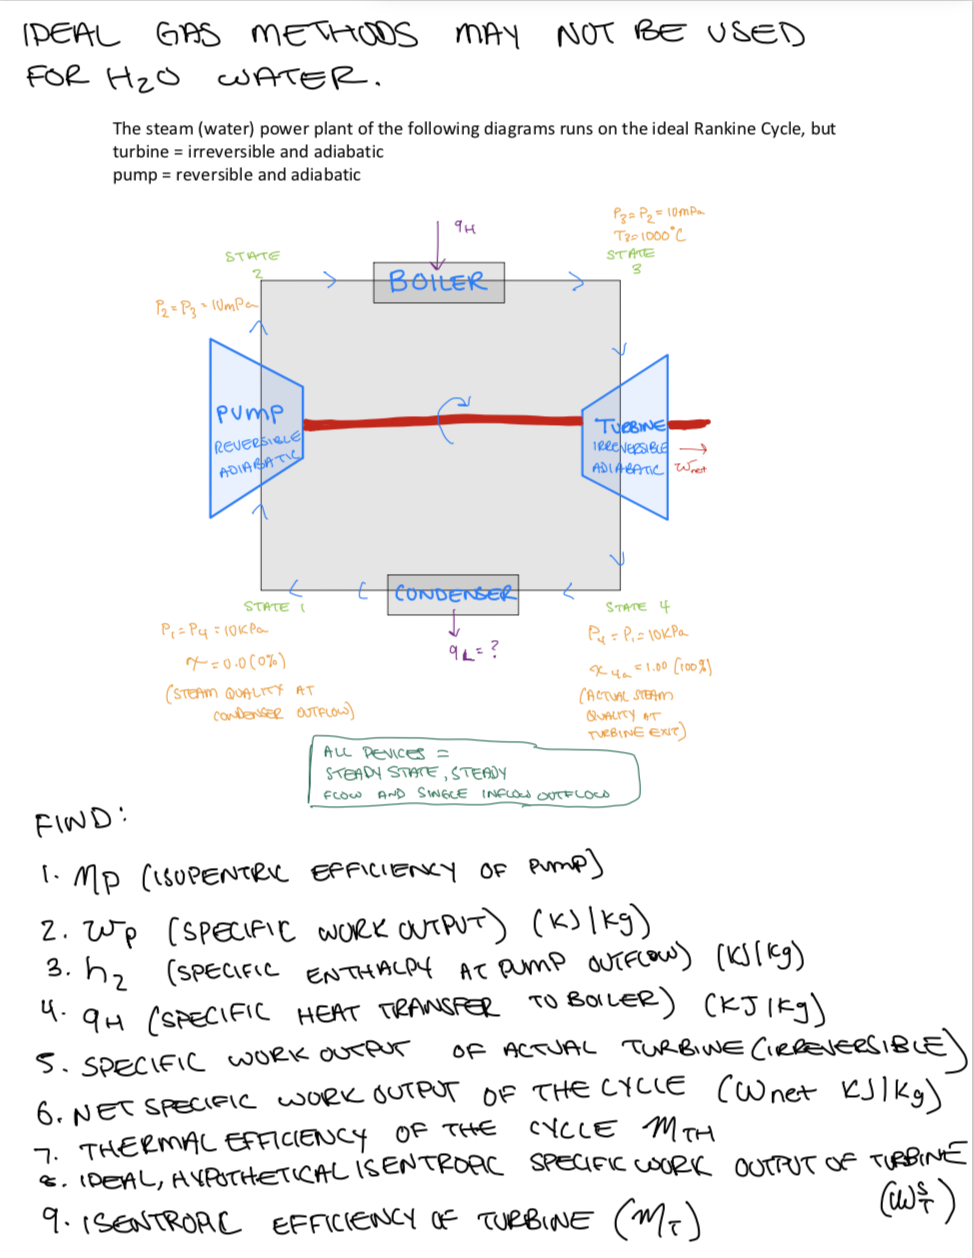 IDEAL GAS METHODS MAY NOT BE USED
FOR H2O WATER.
The steam (water) power plant of the following diagrams runs on the ideal Rankine Cycle, but
turbine = irreversible and adiabatic
pump = reversible and adiabatic
qH
P3=P2=10mPa
T3=1000°C
STATE
3
STATE
2
BOILER
P2=P3=10mPa
PUMP
REVERSIBLE
ADIABATIC
TURBINE
IRREVERSIBLE
ADIABATIC
Wnet
CONDENSER
STATE 1
P1=P4=10KPa
x=0.0(0%)
(STEAM QUALITY AT
CONDENSER OUTFLOW)
qL=?
STATE 4
P4=P1=10KPa
x4a=1.00 (100%)
(ACTUAL STEAM
QUALITY AT
TURBINE EXIT)
ALL DEVICES =
STEADY STATE, STEADY
FLOW AND SINGLE INFLOW OUTFLOW
FIND:
1. ηp (ISOPENTRIC EFFICIENCY OF PUMP)
2. Wp (SPECIFIC WORK OUTPUT) (KJ/kg)
3. h2 (SPECIFIC ENTHALPY AT PUMP OUTFLOW) (KJ/kg)
4. qH (SPECIFIC HEAT TRANSFER TO BOILER) (KJ/kg)
5. SPECIFIC WORK OUTPUT OF ACTUAL TURBINE (IRREVERSIBLE)
6. NET SPECIFIC WORK OUTPUT OF THE CYCLE (Wnet KJ/kg)
7. THERMAL EFFICIENCY OF THE CYCLE ηTH
8. IDEAL, HYPOTHETICAL ISENTROPIC SPECIFIC WORK OUTPUT OF TURBINE
(WsT)
9. ISENTROPIC EFFICIENCY OF TURBINE (ηT)